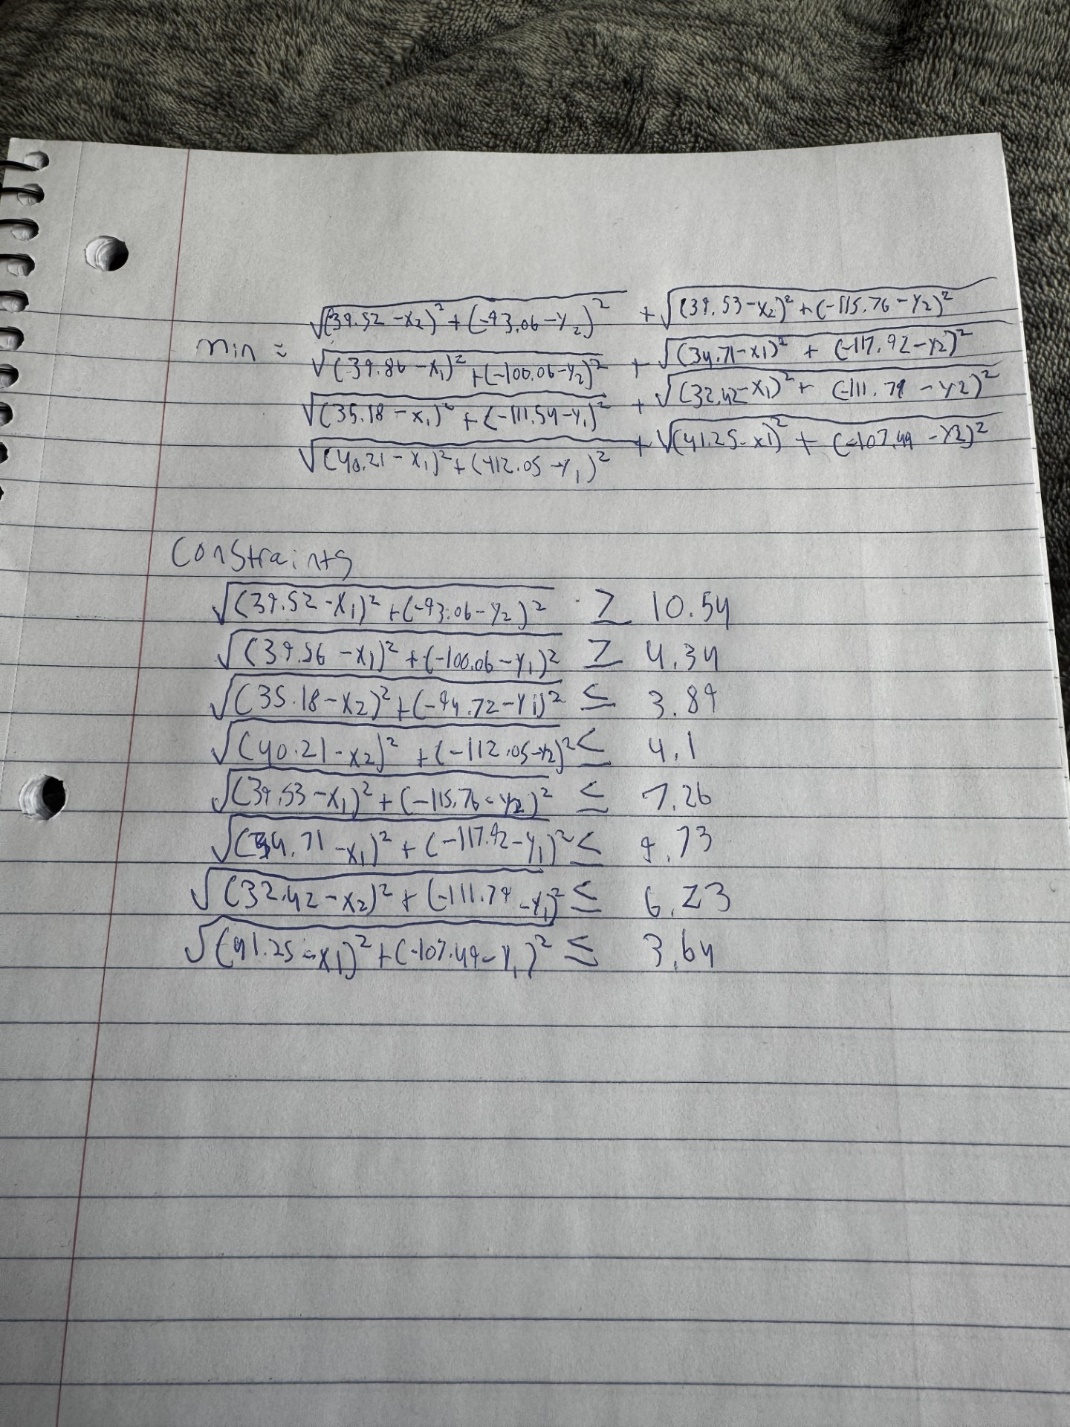 √(39.52 - x₂)² + (-93.06 - y₂)² + √(39.53 - x₂)² + (-115.76 - y₂)²
min = √(39.86 - x₁)² + (-100.06 - y₂)² + √(34.71 - x₁)² + (-117.92 - y₂)²
√(35.18 - x₁)² + (-111.54 - y₁)² + √(32.42 - x₁)² + (-111.79 - y2)²
√(40.21 - x₁)² + (-112.05 - y₁)² + √(41.25 - x1)² + (-107.49 - y2)²
Constraints
√(39.52 - x₁)² + (-93.06 - y₂)² ≥ 10.54
√(39.56 - x₁)² + (-100.06 - y₁)² ≥ 4.34
√(35.18 - x₂)² + (-94.72 - y1)² ≤ 3.89
√(40.21 - x₂)² + (-112.05 - y₂)² ≤ 4.1
√(39.53 - x₁)² + (-115.76 - y₂)² ≤ 7.26
√(34.71 - x₁)² + (-117.92 - y₁)² ≤ 9.73
√(32.42 - x₂)² + (-111.79 - y₁)² ≤ 6.23
√(41.25 - x1)² + (-107.49 - y₁)² ≤ 3.64